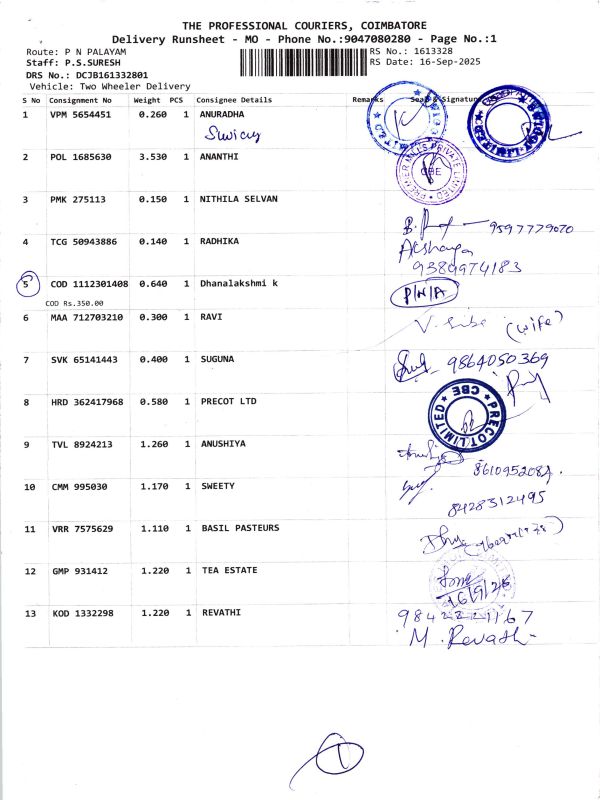 THE PROFESSIONAL COURIERS, COIMBATORE
Delivery Runsheet - MO - Phone No.:9047080280 - Page No.:1
Route: P N PALAYAM
RS No.: 1613328
Staff: P.S.SURESH
RS Date: 16-Sep-2025
DRS No.: DCJB161332801
Vehicle: Two Wheeler Delivery
S No Consignment No Weight PCS Consignee Details Remarks Seal & Signature
1 VPM 5654451 0.260 1 ANURADHA
2 POL 1685630 3.530 1 ANANTHI
PREMIER MILLS PRIVATE LIMITED CBE
3 PMK 275113 0.150 1 NITHILA SELVAN
9597779070
4 TCG 50943886 0.140 1 RADHIKA
Akshaya
9389974183
5 COD 1112301408 0.640 1 Dhanalakshmi k P/N/A
COD Rs.350.00
6 MAA 712703210 0.300 1 RAVI
V. Siba (wife)
7 SVK 65141443 0.400 1 SUGUNA
9864050369
8 HRD 362417968 0.580 1 PRECOT LTD
PRECOT LIMITED CBE
9 TVL 8924213 1.260 1 ANUSHIYA
8610952082.
10 CMM 995030 1.170 1 SWEETY
8428312495
11 VRR 7575629 1.110 1 BASIL PASTEURS
12 GMP 931412 1.220 1 TEA ESTATE
16/9/25
13 KOD 1332298 1.220 1 REVATHI
M. Revathi
1